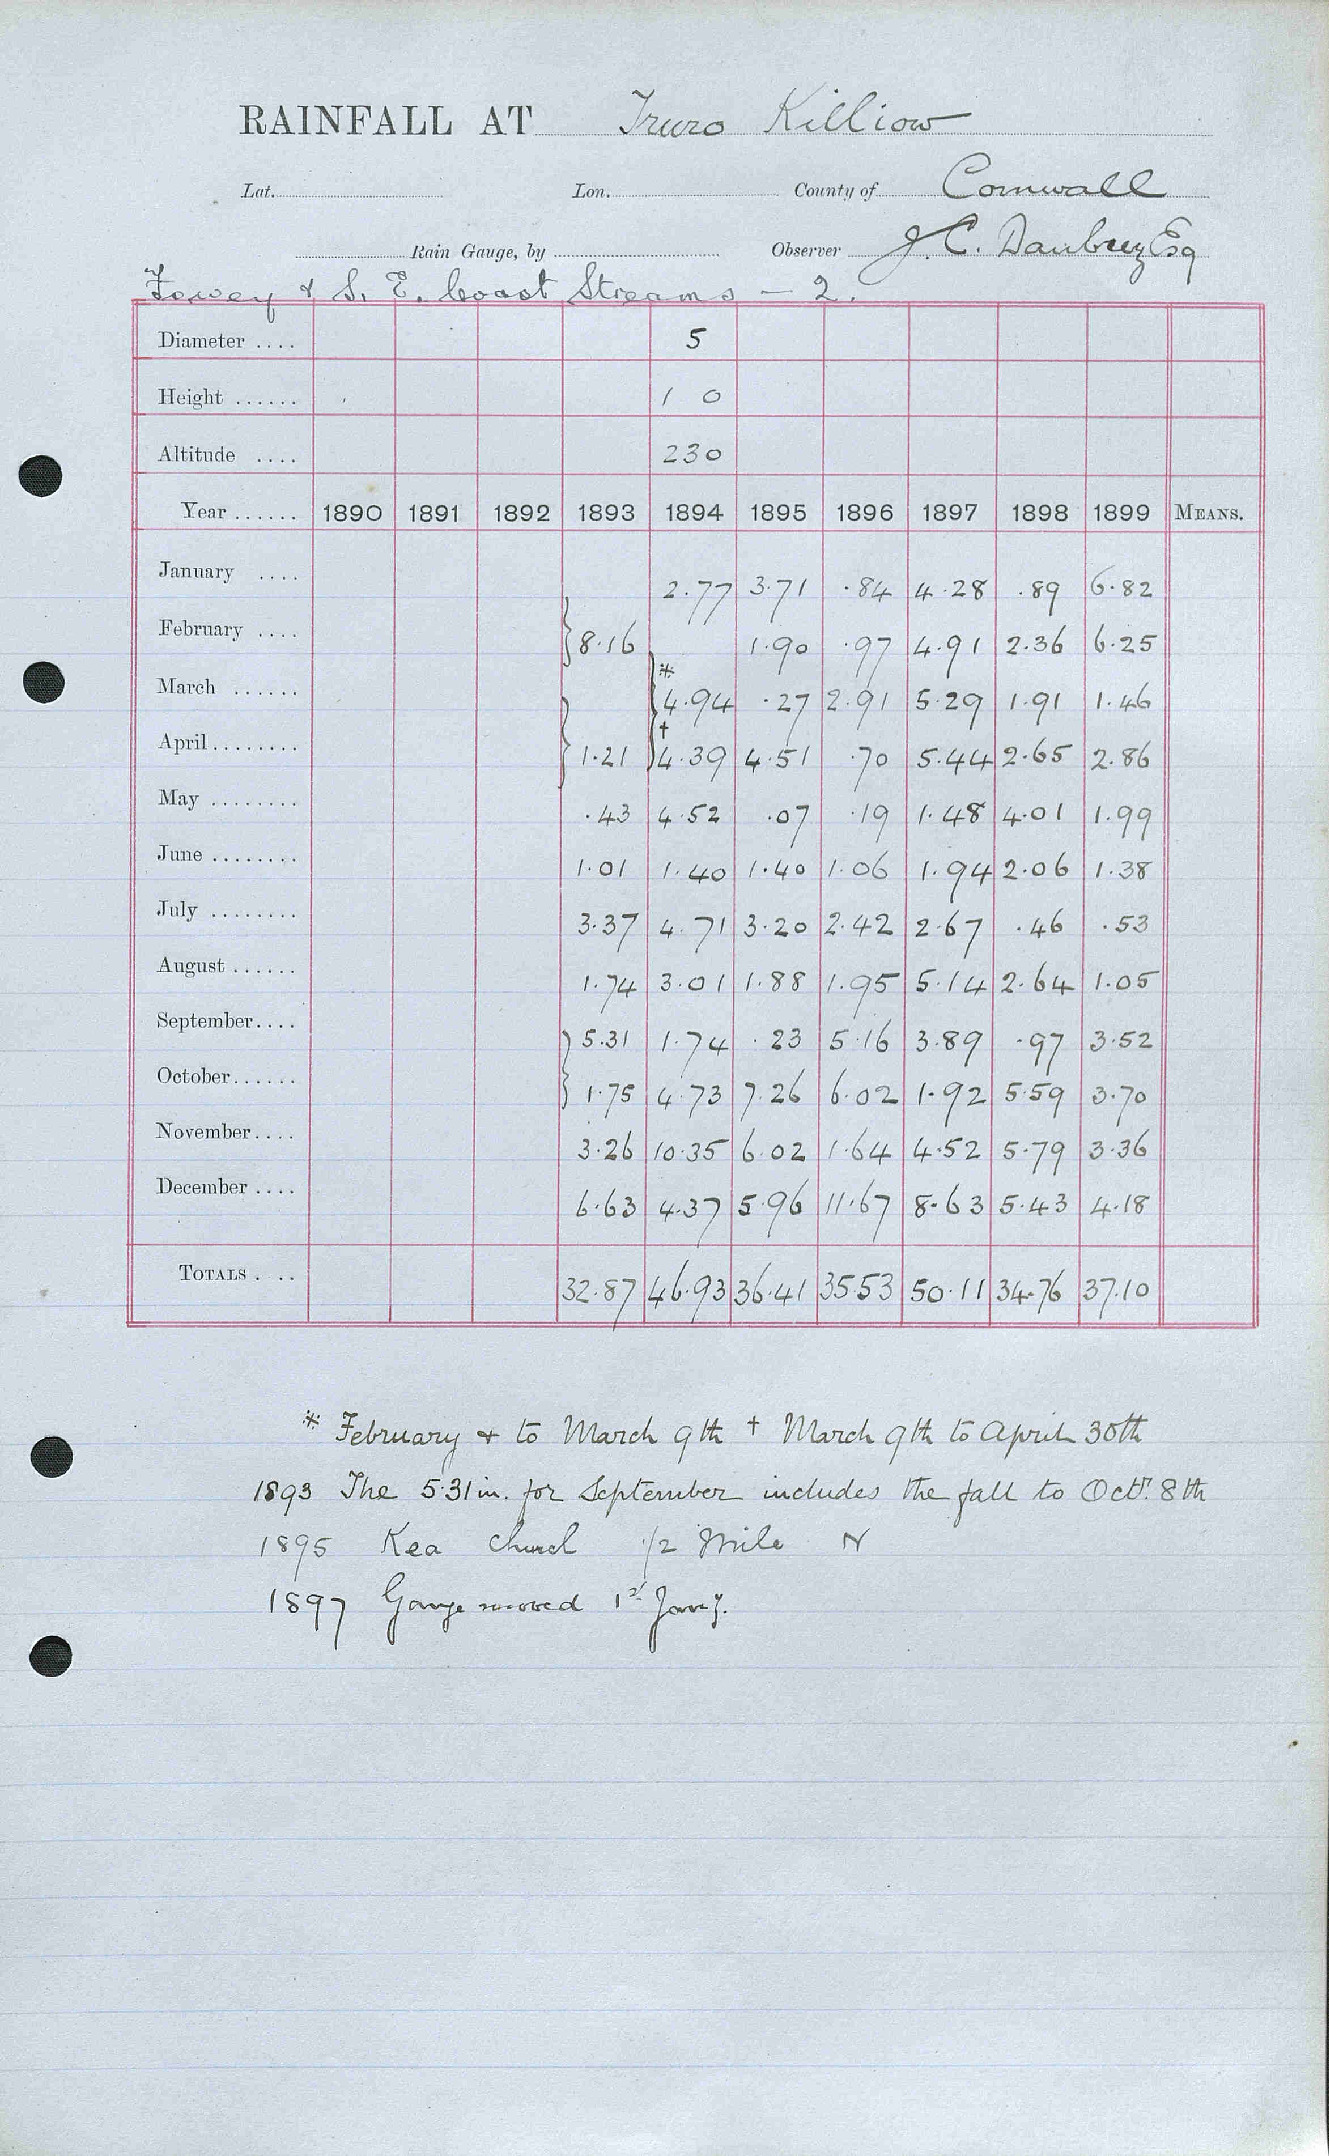 RAINFALL AT Truro Killiow
Lat. Lon. County of Cornwall
Rain Gauge, by Observer J. C. Daubuz Esq
Fowey & S. E. Coast Streams — 2.
Diameter .... 5
Height ...... 1 0
Altitude .... 230
Year ...... 1890 1891 1892 1893 1894 1895 1896 1897 1898 1899 MEANS.
January .... 2.77 3.71 .84 4.28 .89 6.82
February .... } 8.16 1.90 .97 4.91 2.36 6.25
March ...... { * 4.94 .27 2.91 5.29 1.91 1.46
April ........ } 1.21 † 4.39 4.51 .70 5.44 2.65 2.86
May ........ .43 4.52 .07 .19 1.48 4.01 1.99
June ........ 1.01 1.40 1.40 1.06 1.94 2.06 1.38
July ........ 3.37 4.71 3.20 2.42 2.67 .46 .53
August ...... 1.74 3.01 1.88 1.95 5.14 2.64 1.05
September.... } 5.31 1.74 .23 5.16 3.89 .97 3.52
October...... 1.75 4.73 7.26 6.02 1.92 5.59 3.70
November.... 3.26 10.35 6.02 1.64 4.52 5.79 3.36
December .... 6.63 4.37 5.96 11.67 8.63 5.43 4.18
TOTALS . .. 32.87 46.93 36.41 35.53 50.11 34.76 37.10
* February & to March 9th † March 9th to April 30th
1893 The 5.31 in. for September includes the fall to Octr. 8th
1895 Kea Church 1/2 Mile N
1897 Gauge moved 1st Jany.